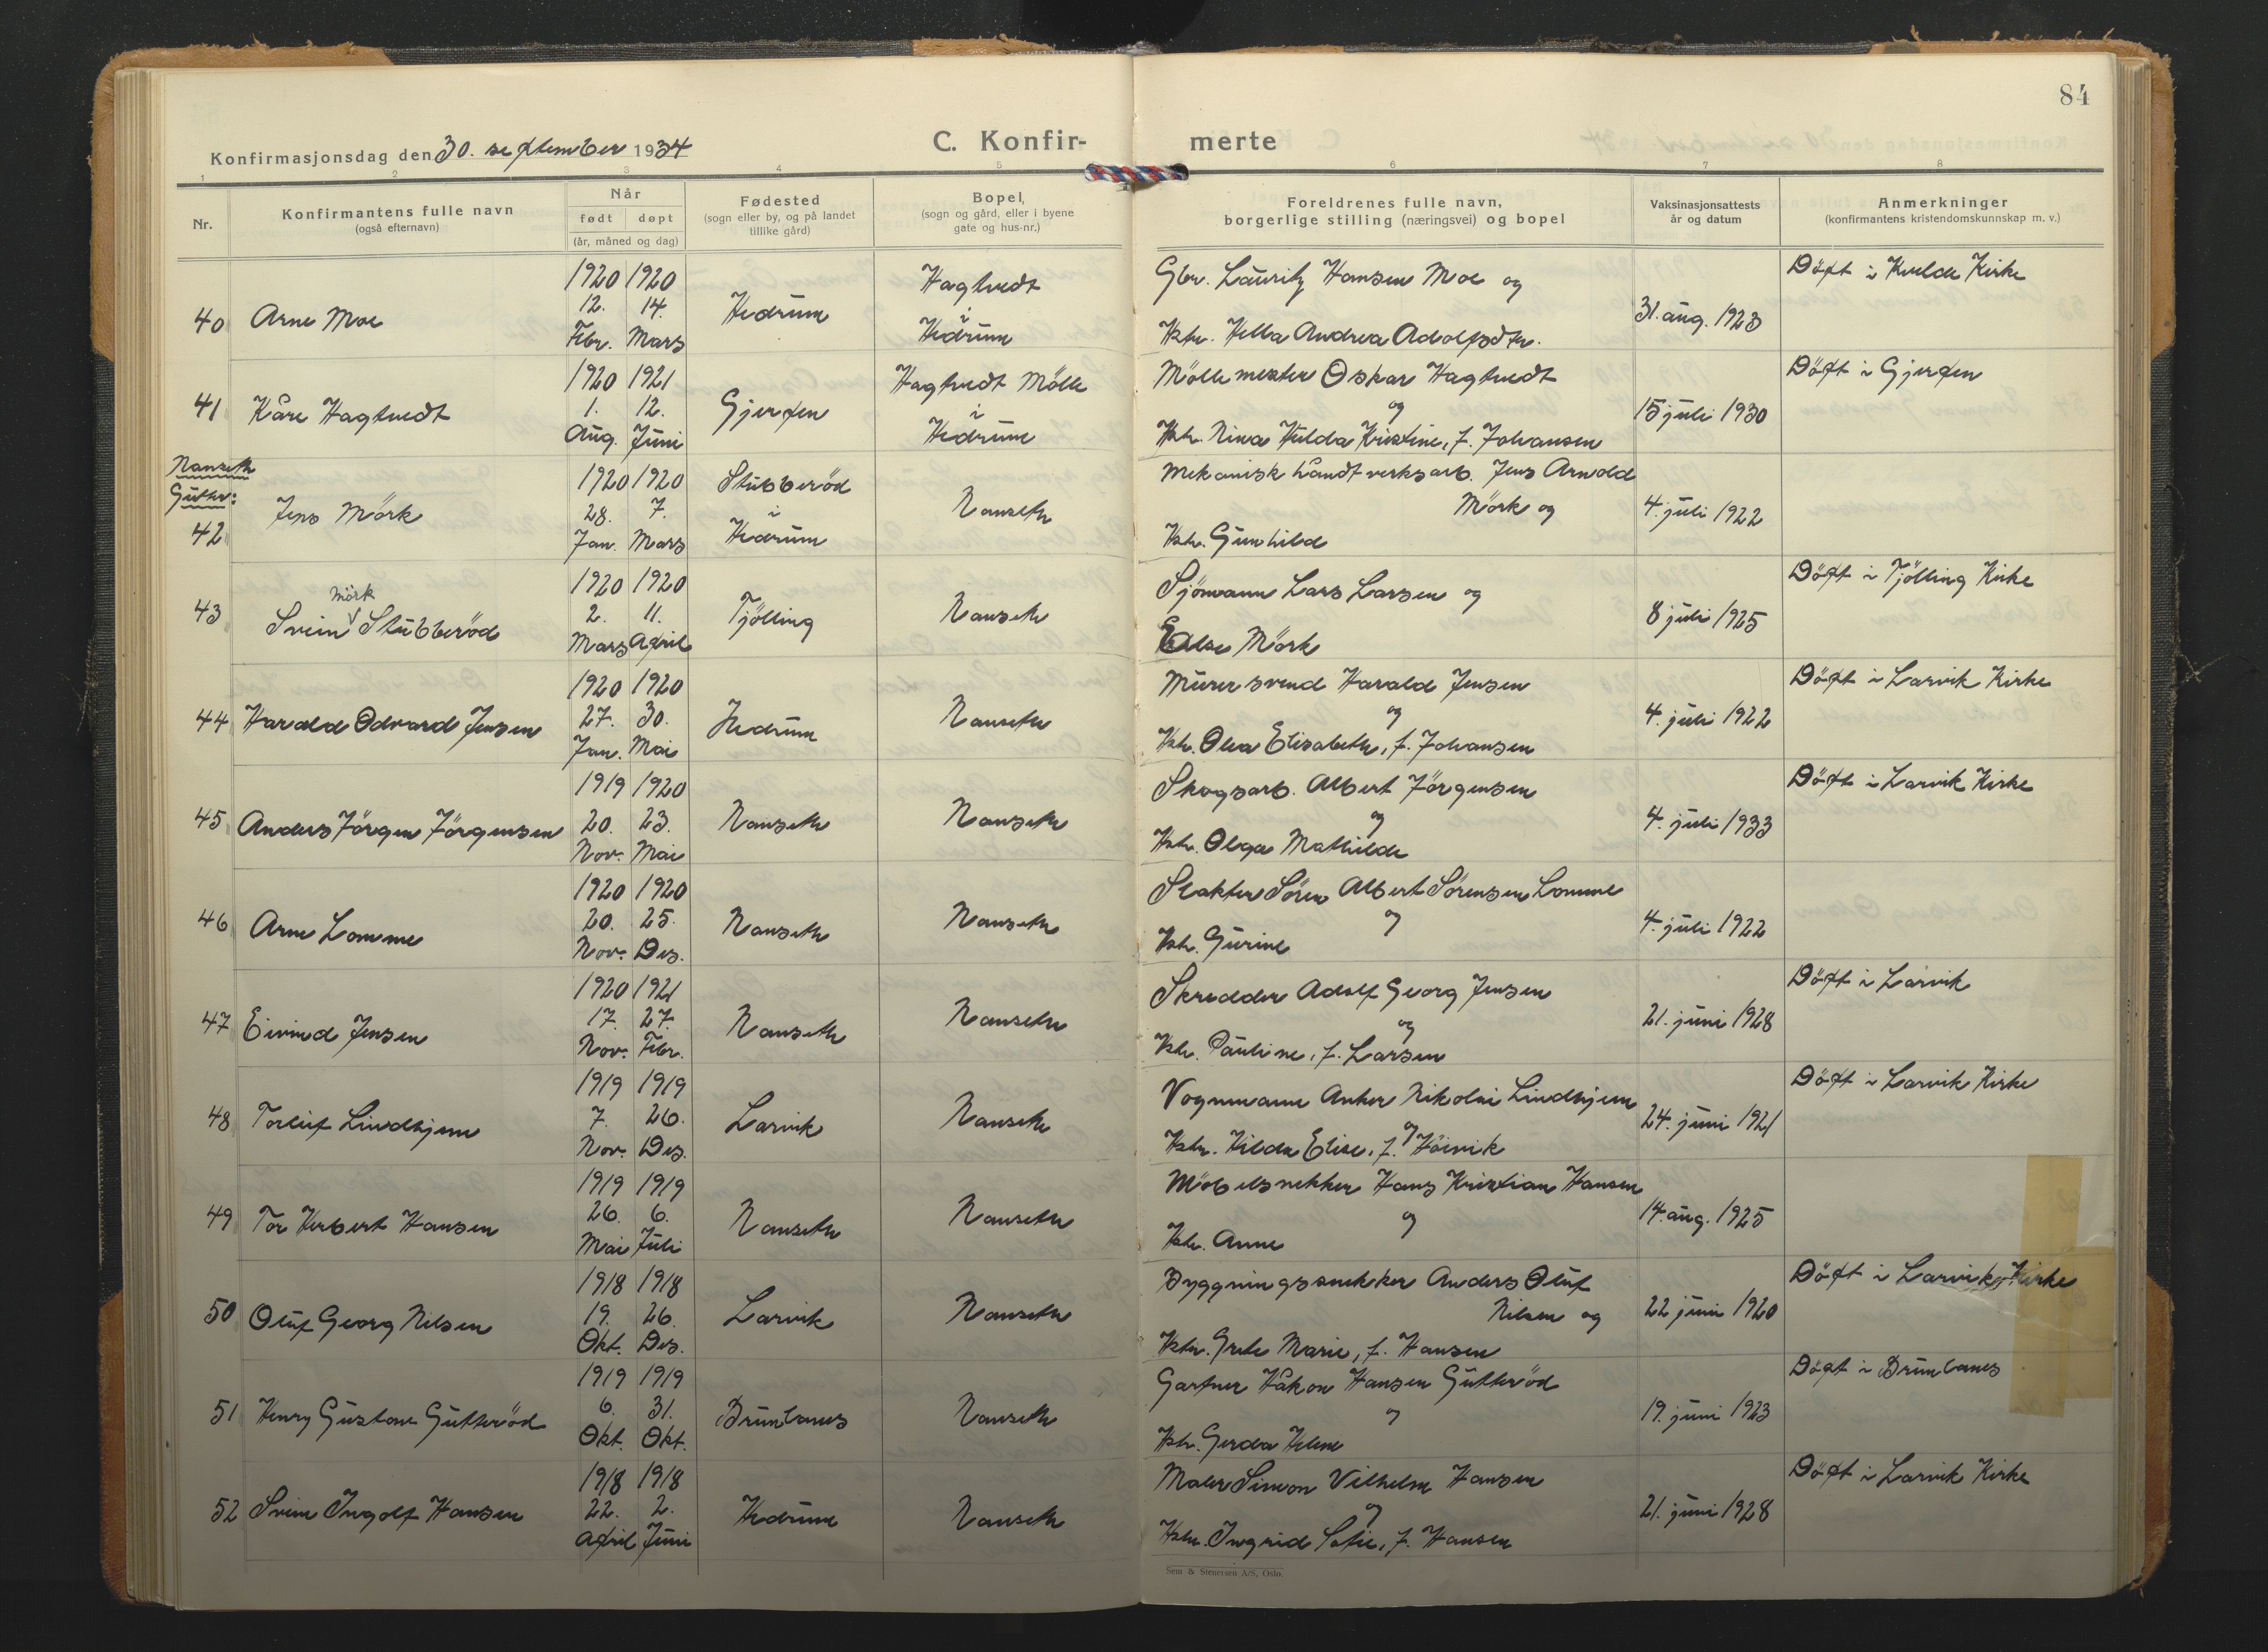 84
Konfirmasjonsdag den 30. september 1934
C. Konfir- merte
1 2 3 4 5 6 7 8
Nr.
Konfirmantens fulle navn
(også efternavn)
Når
født døpt
(år, måned og dag)
Fødested
(sogn eller by, og på landet
tillike gård)
Bopel,
(sogn og gård, eller i byene
gate og hus-nr.)
Foreldrenes fulle navn,
borgerlige stilling (næringsvei) og bopel
Vaksinasjonsattests
år og datum
Anmerkninger
(konfirmantens kristendomskunnskap m. v.)
40 Arne Moe
1920 1920
12. 14.
Febr. Mars
Hedrum
Hagtvedt
i
Hedrum
Gbr. Lauritz Hansen Moe og
Hstr. Hella Andrea Adolfsdtr.
31. aug. 1923
Döpt i Kvelde Kirke
41 Kåre Hagtvedt
1920 1921
1. 12.
Aug. Juni
Gjerpen
Hagtvedt Mölle
i
Hedrum
Möllemester Oskar Hagtvedt
og
Hstr. Nina Hulda Kristine, f. Johansen
15 juli 1930
Döpt i Gjerpen
Nanseth
Gutter:
42 Jens Mörk
1920 1920
28. 7.
Jan. Mars
Stubberöd
i
Hedrum
Nanseth
Mekanisk håndtverksarb. Jens Arnold
Mörk og
Hstr. Gunhild
4. juli 1922
43 Svein Mörk Stubberöd
1920 1920
2. 11.
Mars April
Tjölling
Nanseth
Sjömann Lars Larsen og
Else Mörk
8 juli 1925
Döpt i Tjölling Kirke
44 Harald Odvard Jensen
1920 1920
27. 30.
Jan. Mai
Hedrum
Nanseth
Murersvend Harald Jensen
og
Hstr. Olva Elisabeth, f. Johansen
4. juli 1922
Döpt i Larvik Kirke
45 Anders Jörgen Jörgensen
1919 1920
20. 23.
Nov. Mai
Nanseth
Nanseth
Skogsarb. Albert Jörgensen
og
Hstr. Olga Mathilde
4. juli 1933
Döpt i Larvik Kirke
46 Arne Lomme
1920 1920
20. 25.
Nov. Des.
Nanseth
Nanseth
Slakter Sören Albert Sörensen Lomme
og
Hstr. Gurine
4. juli 1922
47 Eivind Jensen
1920 1921
17. 27.
Nov. Febr.
Nanseth
Nanseth
Skredder Adolf Georg Jensen
og
Hstr. Pauline, f. Larsen
21. juni 1928
Döpt i Larvik
48 Torleif Lindhjem
1919 1919
7. 26.
Nov. Des.
Larvik
Nanseth
Vognmann Anker Nikolai Lindhjem
og
Hstr. Hilda Elise, f. Höivik
24. juni 1921
Döpt i Larvik Kirke
49 Tor Herbert Hansen
1919 1919
26. 6.
Mai Juli
Nanseth
Nanseth
Möbelsnekker Hans Kristian Hansen
og
Hstr. Anne
14. aug. 1925
50 Oluf Georg Nilsen
1918 1918
19. 26.
Okt. Des.
Larvik
Nanseth
Bygningssnekker Anders Oluf
Nilsen og
Hstr. Grete Marie, f. Hansen
22 juni 1920
Döpt i Larviks Kirke
51 Henry Gustav Gutteröd
1919 1919
6. 31.
Okt. Okt.
Brunlanes
Nanseth
Gartner Håkon Hansen Gutteröd
og
Hstr. Gerda Helene
19. juni 1923
Döpt i Brunlanes
52 Svein Ingolf Hansen
1918 1918
22. 2.
April Juni
Hedrum
Nanseth
Maler Simon Vilhelm Hansen
og
Hstr. Ingrid Sofie, f. Hansen
21. juni 1928
Döpt i Larvik Kirke
Sem & Stenersen A/S, Oslo.